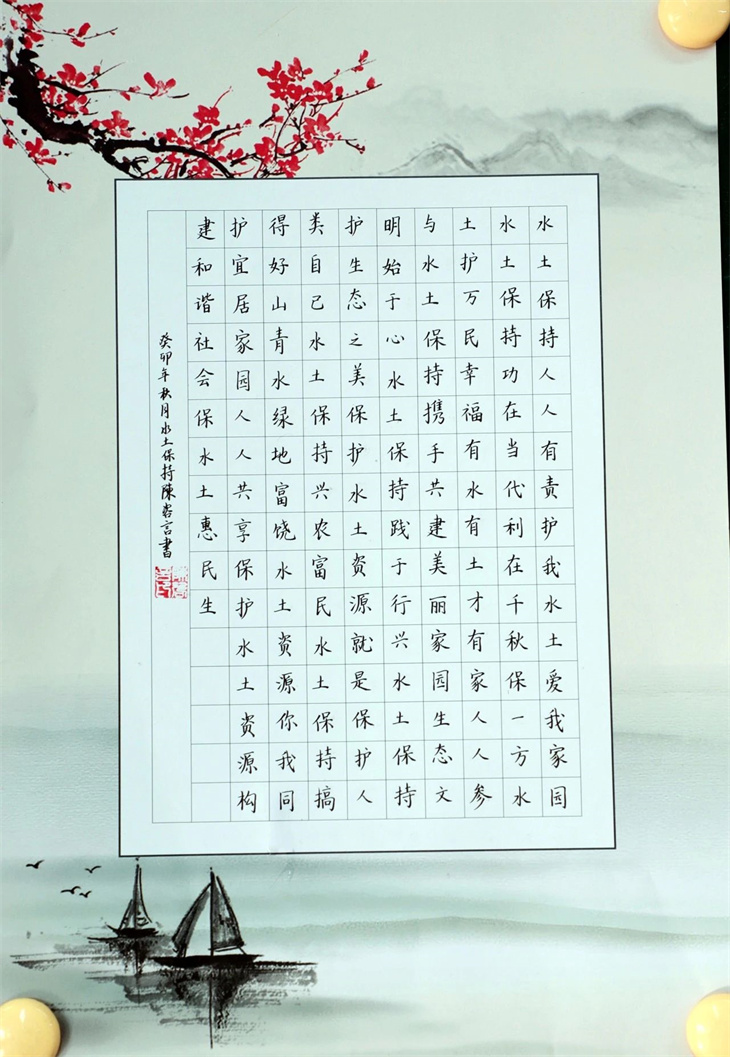 水土保持人人有责护我水土爱我家园
水土保持功在当代利在千秋保一方水
土护万民幸福有水有土才有家人人参
与水土保持携手共建美丽家园生态文
明始于心水土保持践于行兴水土保持
护生态之美保护水土资源就是保护人
类自己水土保持兴农富民水土保持搞
得好山青水绿地富饶水土资源你我同
护宜居家园人人共享保护水土资源构
建和谐社会保水土惠民生
癸卯年秋月水土保持陳言書